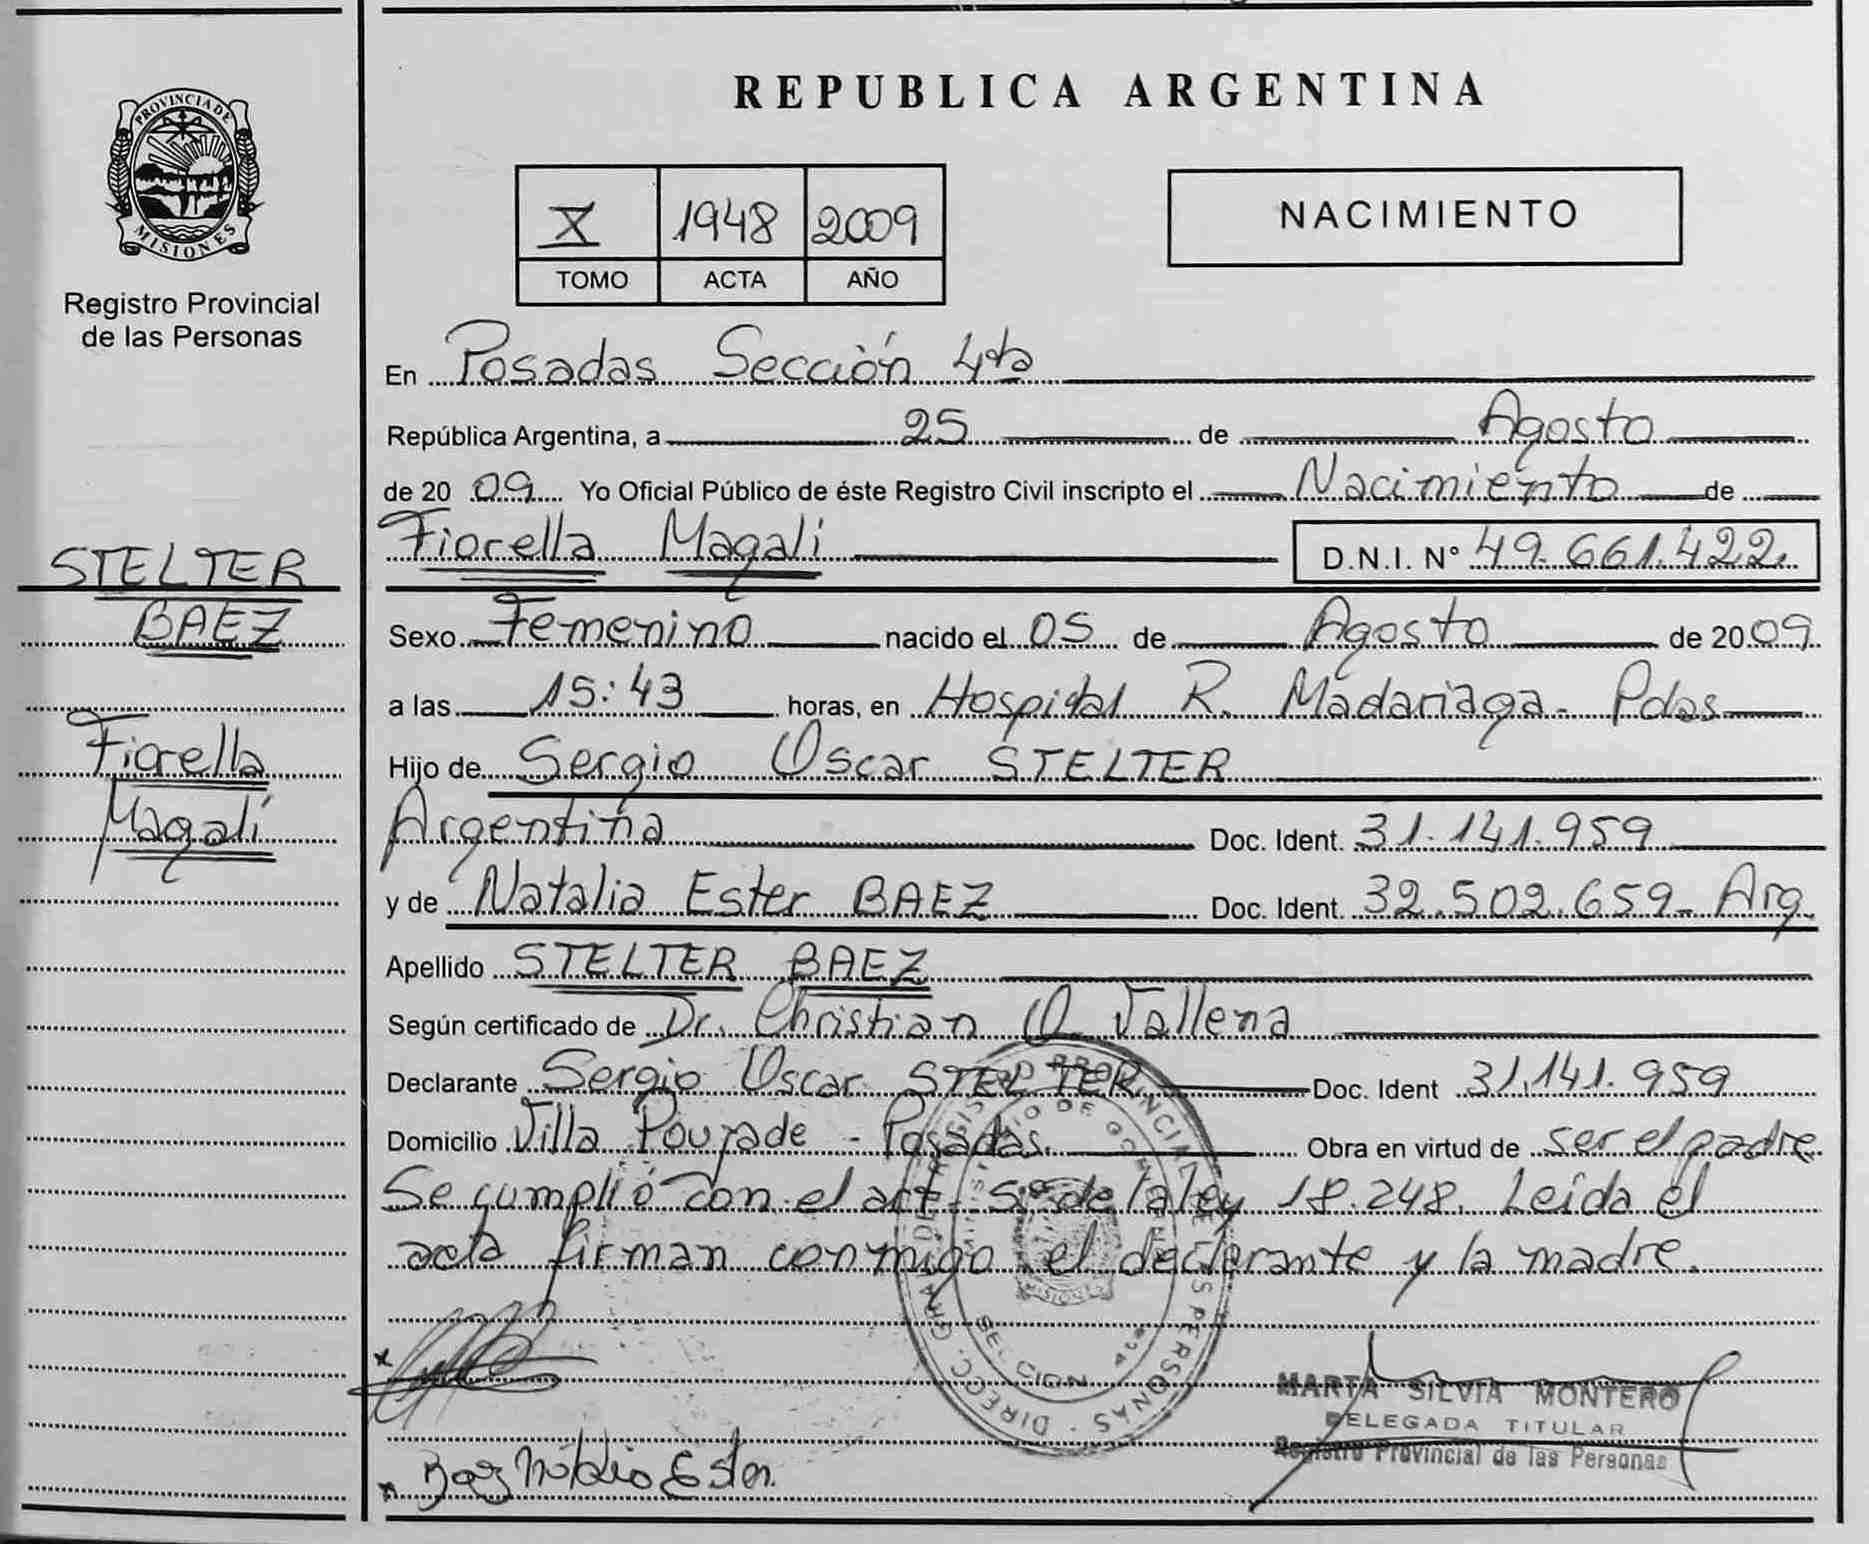 REPUBLICA ARGENTINA
PROVINCIA DE
MISIONES
Registro Provincial
de las Personas
X 1948 2009
TOMO ACTA AÑO
NACIMIENTO
En Posadas Sección 4ta
República Argentina, a 25 de Agosto
de 2009 Yo Oficial Público de éste Registro Civil inscripto el Nacimiento de
Fiorella Magalí D.N.I. Nº 49.661.422
STELTER
BAEZ
Fiorella
Magalí
Sexo Femenino nacido el 05 de Agosto de 2009
a las 15:43 horas, en Hospital R. Madariaga - Pdas
Hijo de Sergio Oscar STELTER
Argentina Doc. Ident. 31.141.959
y de Natalia Ester BAEZ Doc. Ident. 32.502.659 - Arg.
Apellido STELTER BAEZ
Según certificado de Dr. Christian O. Vallena
Declarante Sergio Oscar STELTER Doc. Ident 31.141.959
Domicilio Villa Poujade - Posadas. Obra en virtud de ser el padre
Se cumplió con el art. 5º de la ley 18.248. Leída el
acta firman conmigo el declarante y la madre.
MARTA SILVIA MONTERO
DELEGADA TITULAR
Registro Provincial de las Personas
Baez Natalia Ester